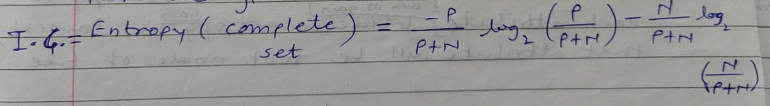 I.G. = Entropy ( complete set ) = -P/P+N log₂ (P/P+N) - N/P+N log₂
(N/P+N)